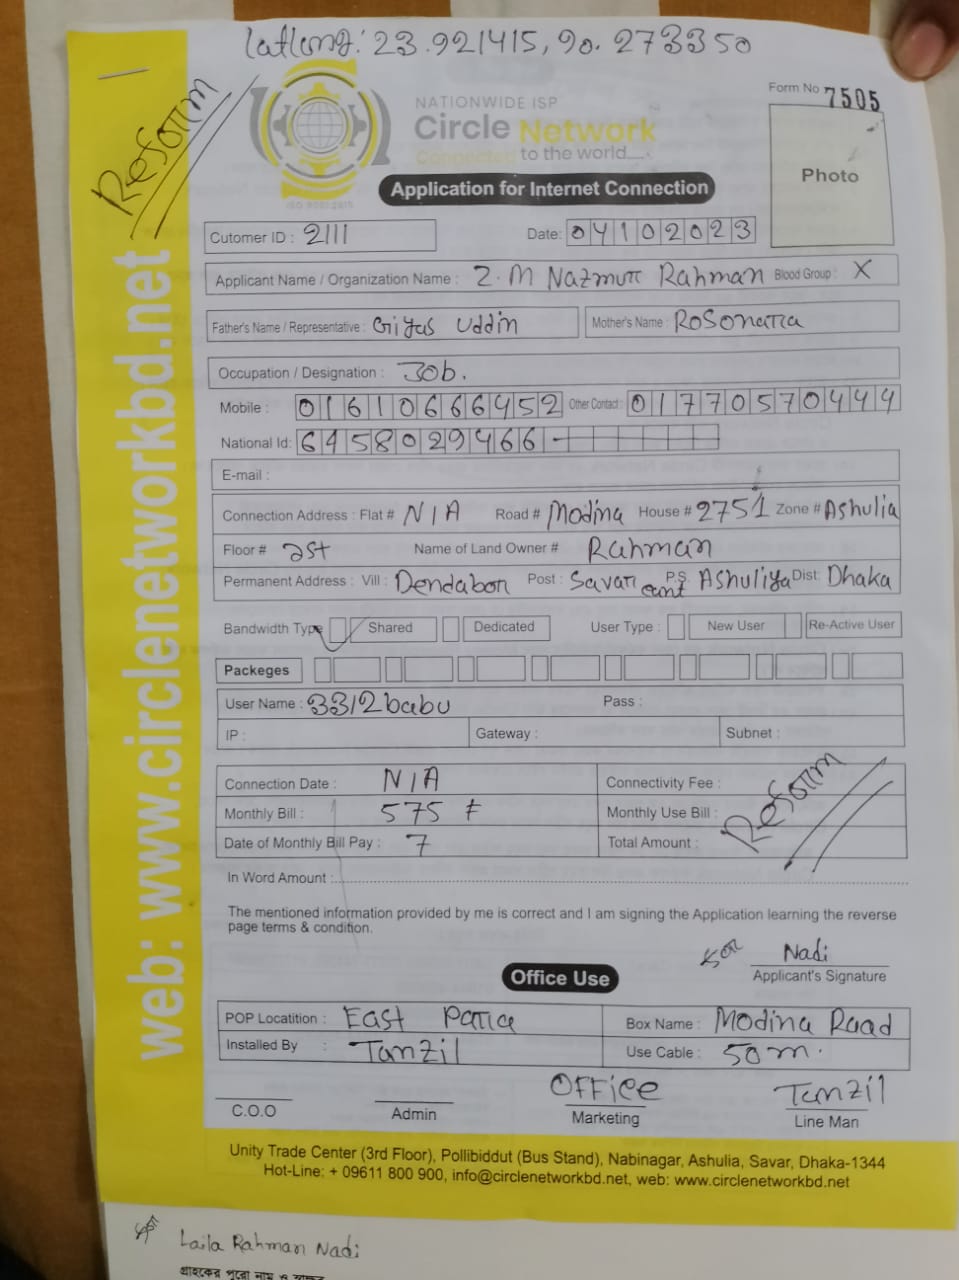 latlong: 23.921415, 90.273350
Reform
Form No 7505
NATIONWIDE ISP
Circle Network
Connected to the world....
ISO 9001:2015
Photo
Application for Internet Connection
Cutomer ID : 2111
Date: 04102023
Applicant Name / Organization Name : Z.M Nazmur Rahman Blood Group : X
Father's Name / Representative : Giyas Uddin Mother's Name : Rosonara
Occupation / Designation : Job.
Mobile : 01610666452 Other Contact : 01770570444
National Id: 6458029466 -
E-mail :
Connection Address : Flat # N/A Road # Modina House # 2751 Zone # Ashulia
Floor # 1st Name of Land Owner # Rahman
Permanent Address : Vill : Dendabon Post : Savar cant P.S. Ashuliya Dist: Dhaka
Bandwidth Type ✓ Shared Dedicated User Type : New User Re-Active User
Packeges
User Name : 3312babu Pass :
IP : Gateway : Subnet :
Connection Date : N/A Connectivity Fee :
Monthly Bill : 575 ৳ Monthly Use Bill :
Date of Monthly Bill Pay : 7 Total Amount :
Reform
In Word Amount :
The mentioned information provided by me is correct and I am signing the Application learning the reverse
page terms & condition.
Nadi
Applicant's Signature
Office Use
POP Locatition : East Para Box Name : Modina Road
Installed By : Tanzil Use Cable : 50m.
Office Tanzil
C.O.O Admin Marketing Line Man
Unity Trade Center (3rd Floor), Pollibiddut (Bus Stand), Nabinagar, Ashulia, Savar, Dhaka-1344
Hot-Line: + 09611 800 900, info@circlenetworkbd.net, web: www.circlenetworkbd.net
web: www.circlenetworkbd.net
Laila Rahman Nadi
গ্রাহকের পুরো নাম ও